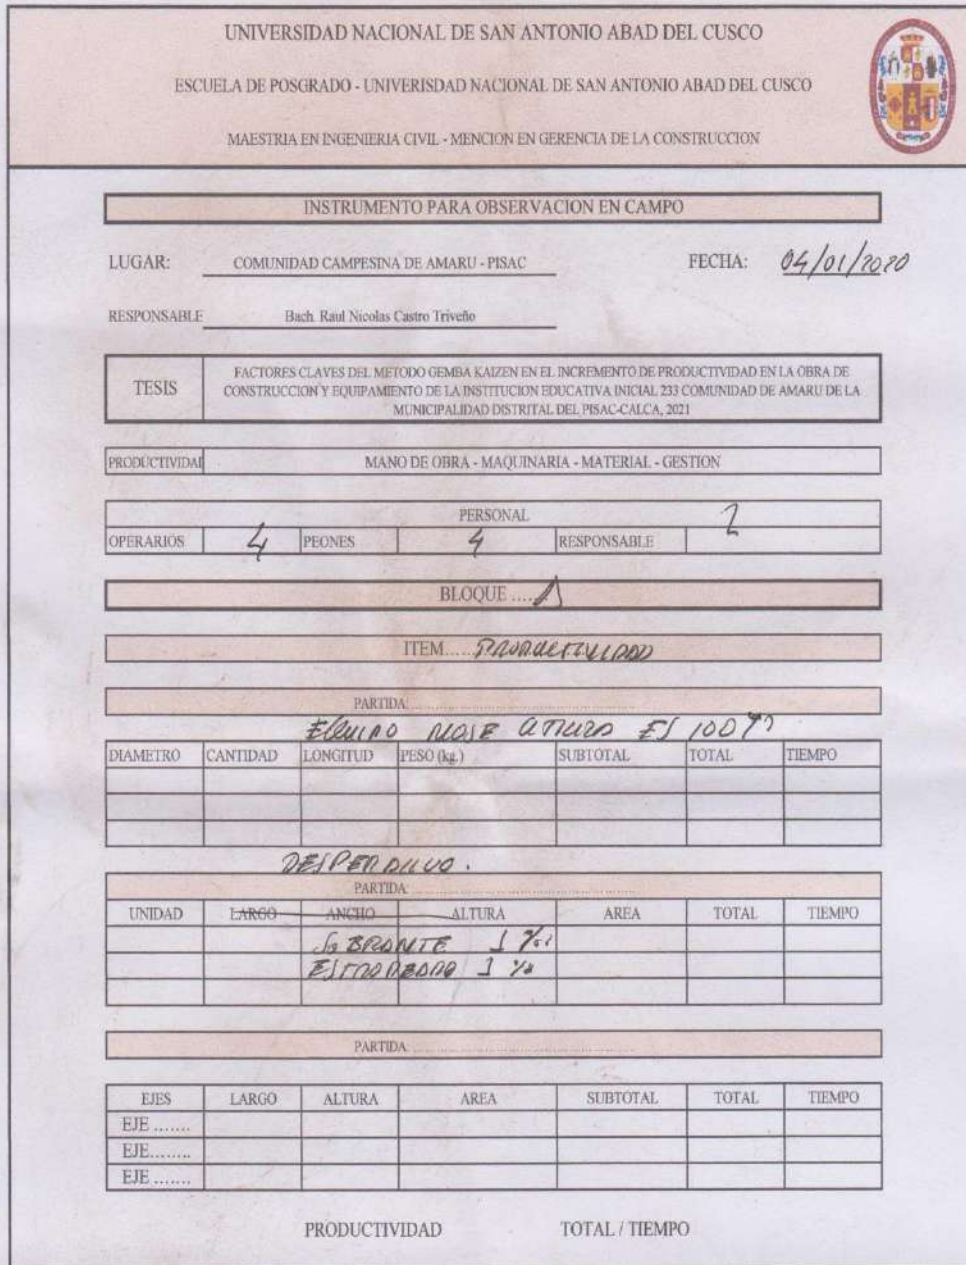 UNIVERSIDAD NACIONAL DE SAN ANTONIO ABAD DEL CUSCO
ESCUELA DE POSGRADO - UNIVERISDAD NACIONAL DE SAN ANTONIO ABAD DEL CUSCO
MAESTRIA EN INGENIERIA CIVIL - MENCION EN GERENCIA DE LA CONSTRUCCION
INSTRUMENTO PARA OBSERVACION EN CAMPO
LUGAR: COMUNIDAD CAMPESINA DE AMARU - PISAC FECHA: 04/01/2020
RESPONSABLE Bach. Raul Nicolas Castro Triveño
TESIS FACTORES CLAVES DEL METODO GEMBA KAIZEN EN EL INCREMENTO DE PRODUCTIVIDAD EN LA OBRA DE
CONSTRUCCION Y EQUIPAMIENTO DE LA INSTITUCION EDUCATIVA INICIAL 233 COMUNIDAD DE AMARU DE LA
MUNICIPALIDAD DISTRITAL DEL PISAC-CALCA, 2021
PRODUCTIVIDAD MANO DE OBRA - MAQUINARIA - MATERIAL - GESTION
PERSONAL
OPERARIOS 4 PEONES 4 RESPONSABLE
BLOQUE ......
ITEM..... PRODUCTIVIDAD
PARTIDA:
ES 100
DIAMETRO CANTIDAD LONGITUD PESO (kg.) SUBTOTAL TOTAL TIEMPO
DESPERDICIO.
PARTIDA:
UNIDAD LARGO ANCHO ALTURA AREA TOTAL TIEMPO
SOBRANTE 1 %
1 %
PARTIDA:
EJES LARGO ALTURA AREA SUBTOTAL TOTAL TIEMPO
EJE .......
EJE........
EJE .......
PRODUCTIVIDAD TOTAL / TIEMPO